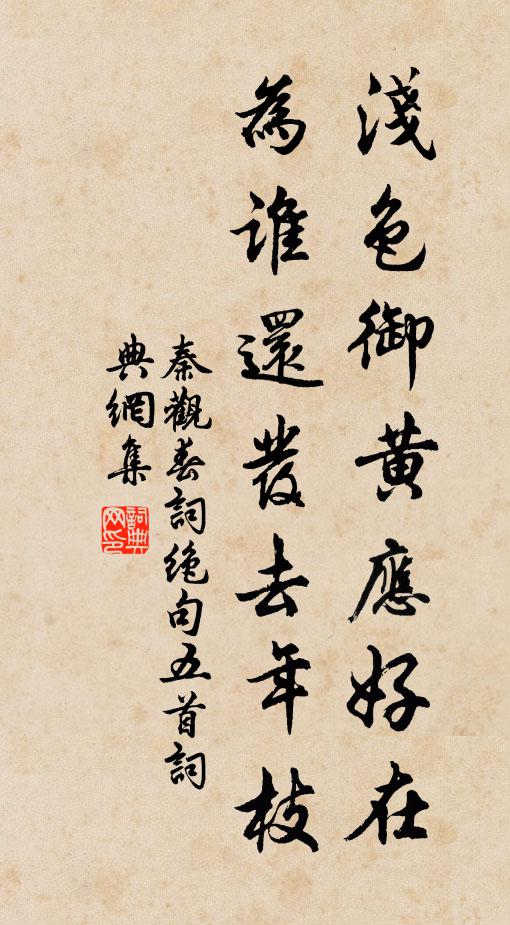 淺色御黃應好在
為誰還發去年枝
秦觀春詞絕句五首詞
典網集
詞典
网印